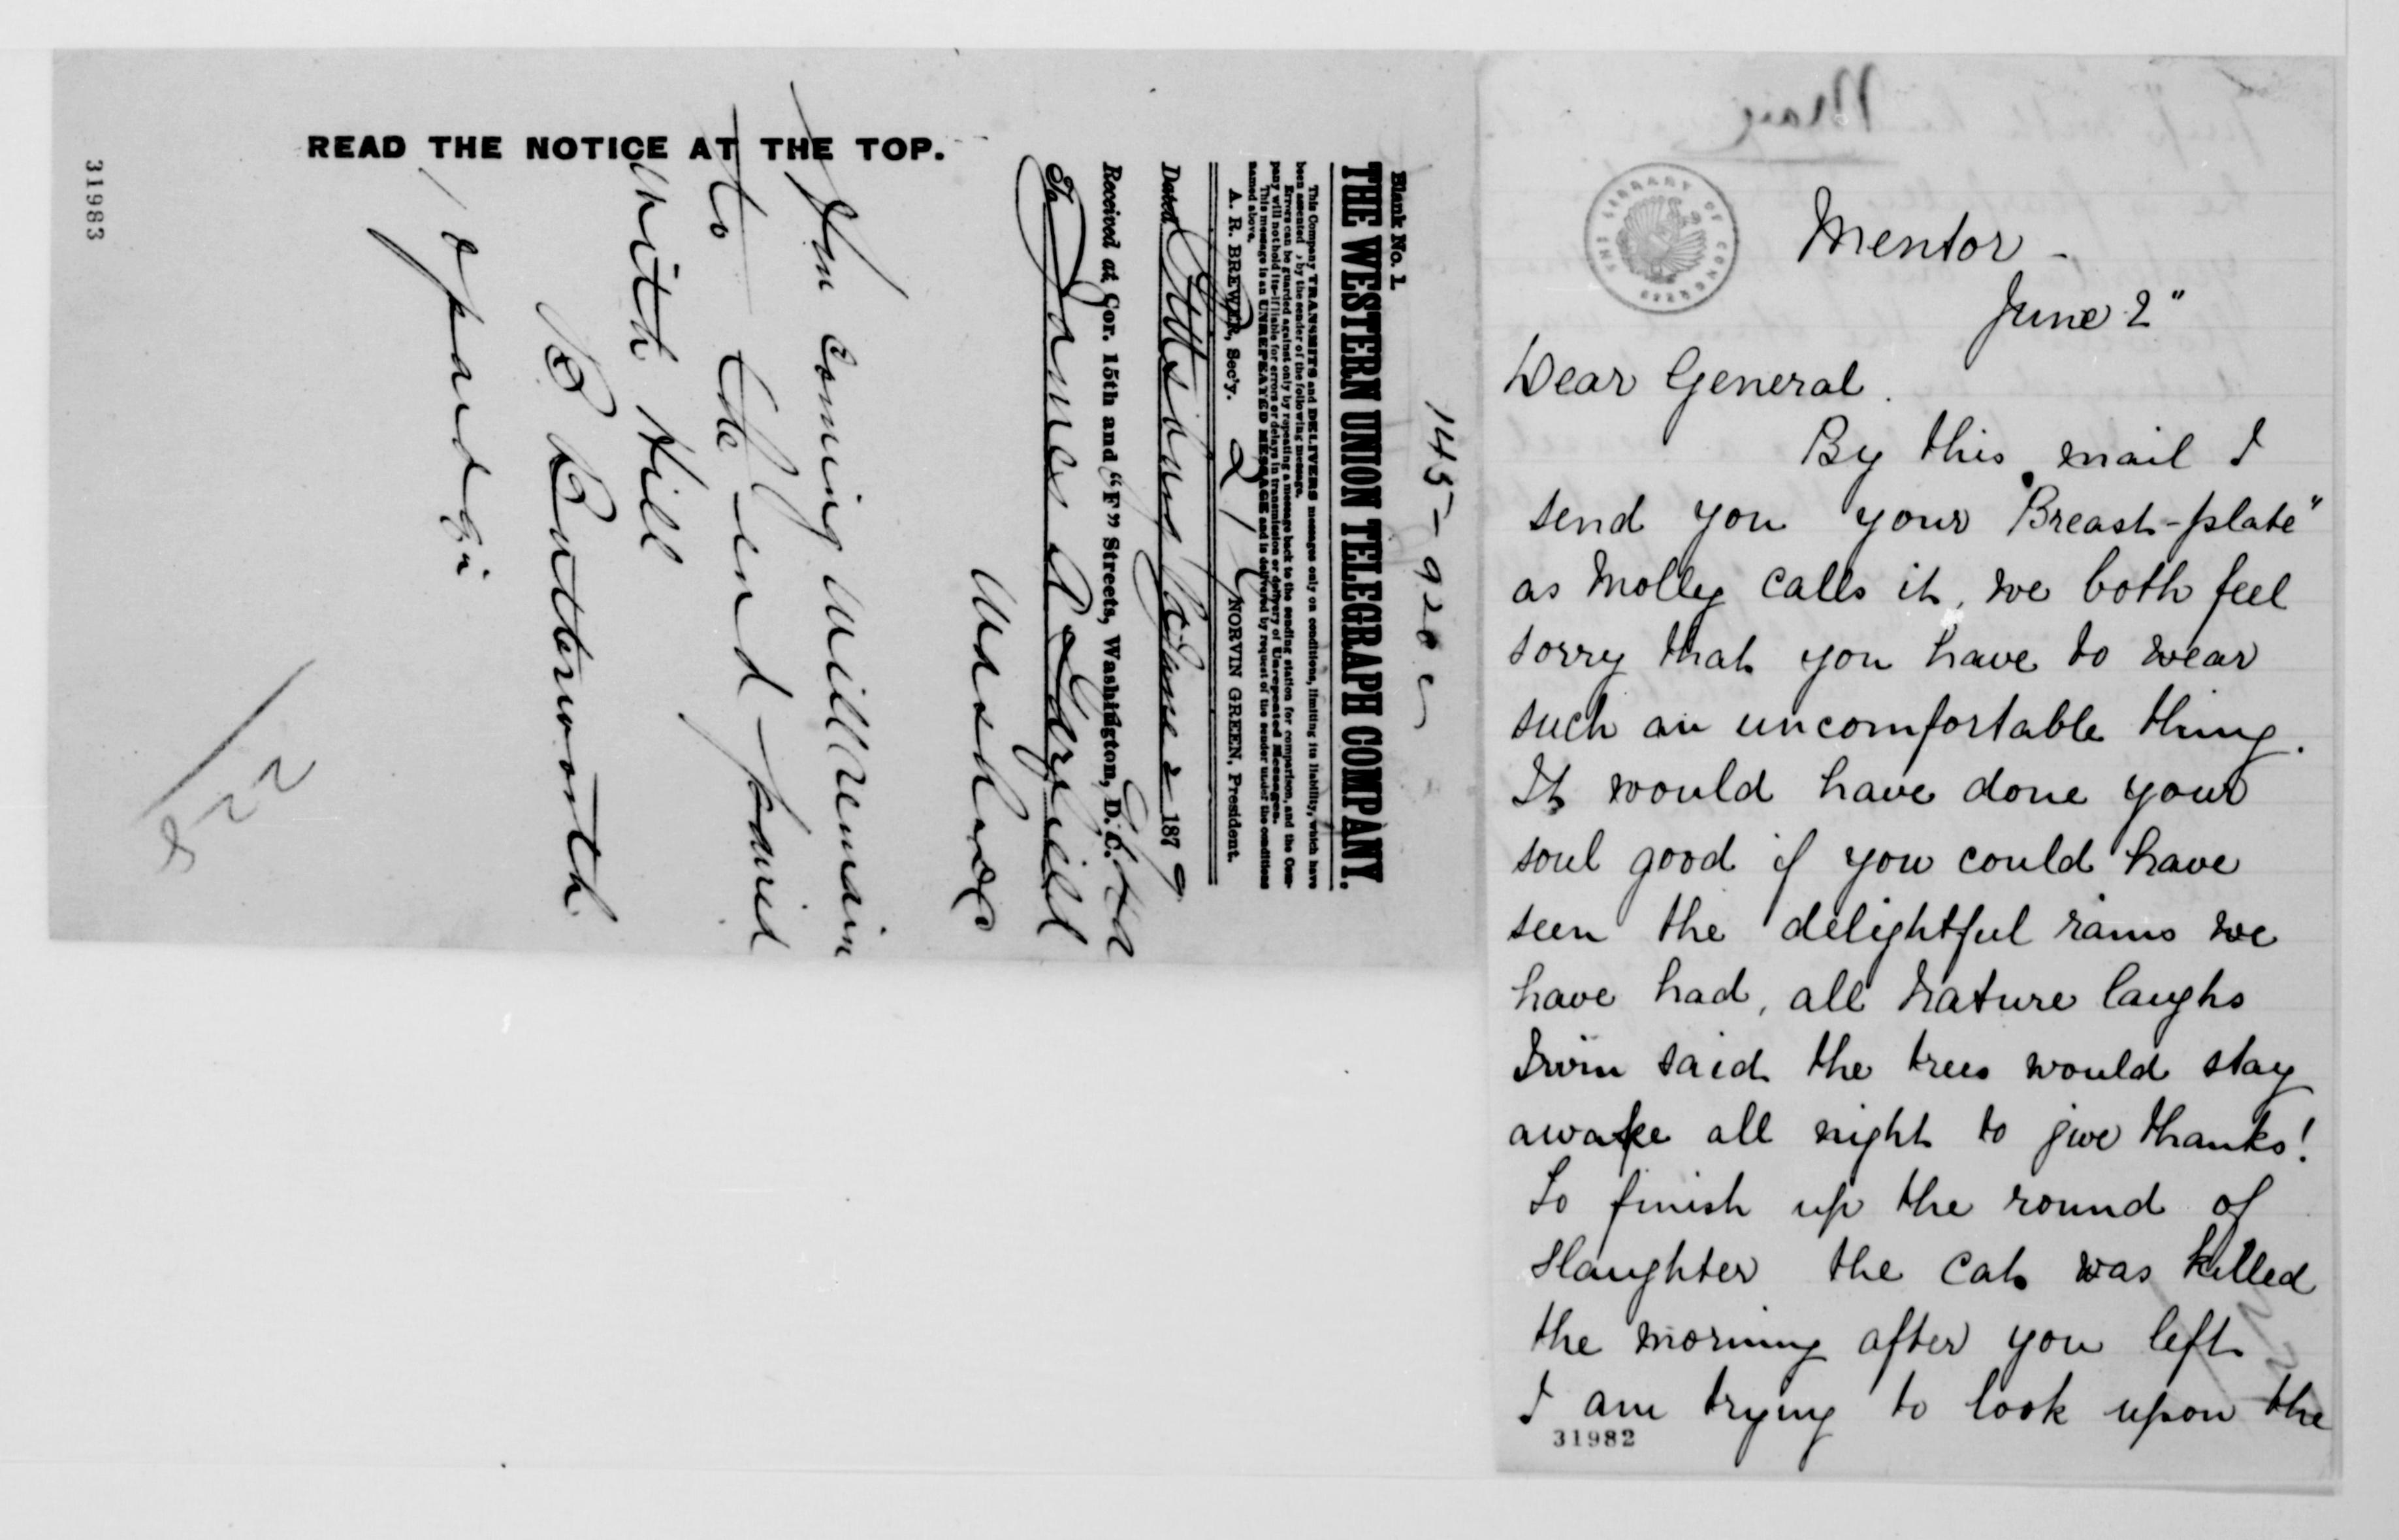 READ THE NOTICE AT THE TOP.
31983
145- 920
Blank No. 1.
THE WESTERN UNION TELEGRAPH COMPANY.
This Company TRANSMITS and DELIVERS messages only on conditions, limiting its liability, which have
been assented by the sender of the following message.
Errors can be guarded against only by repeating a message back to the sending station for comparison, and the Com-
pany will not hold itself liable for errors or delays in transmission or delivery of Unrepeated Messages.
This message is an UNREPEATED MESSAGE and is delivered by request of the sender under the conditions
named above.
A. R. BREWER, Sec'y. NORVIN GREEN, President.
21
Dated Pittsburg Pa June 2 1879
Received at Cor. 15th and "F" Streets, Washington, D. C.
To James A Garfield
Wash
Am coming will remain
to the end paired
with Hill
B Butterworth
paid
522
THE LIBRARY OF CONGRESS
Mentor -
June 2"
Dear General.
By this mail I
send you your "Breast-plate"
as Molly calls it, we both feel
sorry that you have to wear
such an uncomfortable thing.
It would have done your
soul good if you could have
seen the delightful rains we
have had, all nature laughs
Irvin said the trees would stay
awake all night to give thanks!
To finish up the round of
slaughter the cat was killed
the morning after you left
I am trying to look upon the
31982